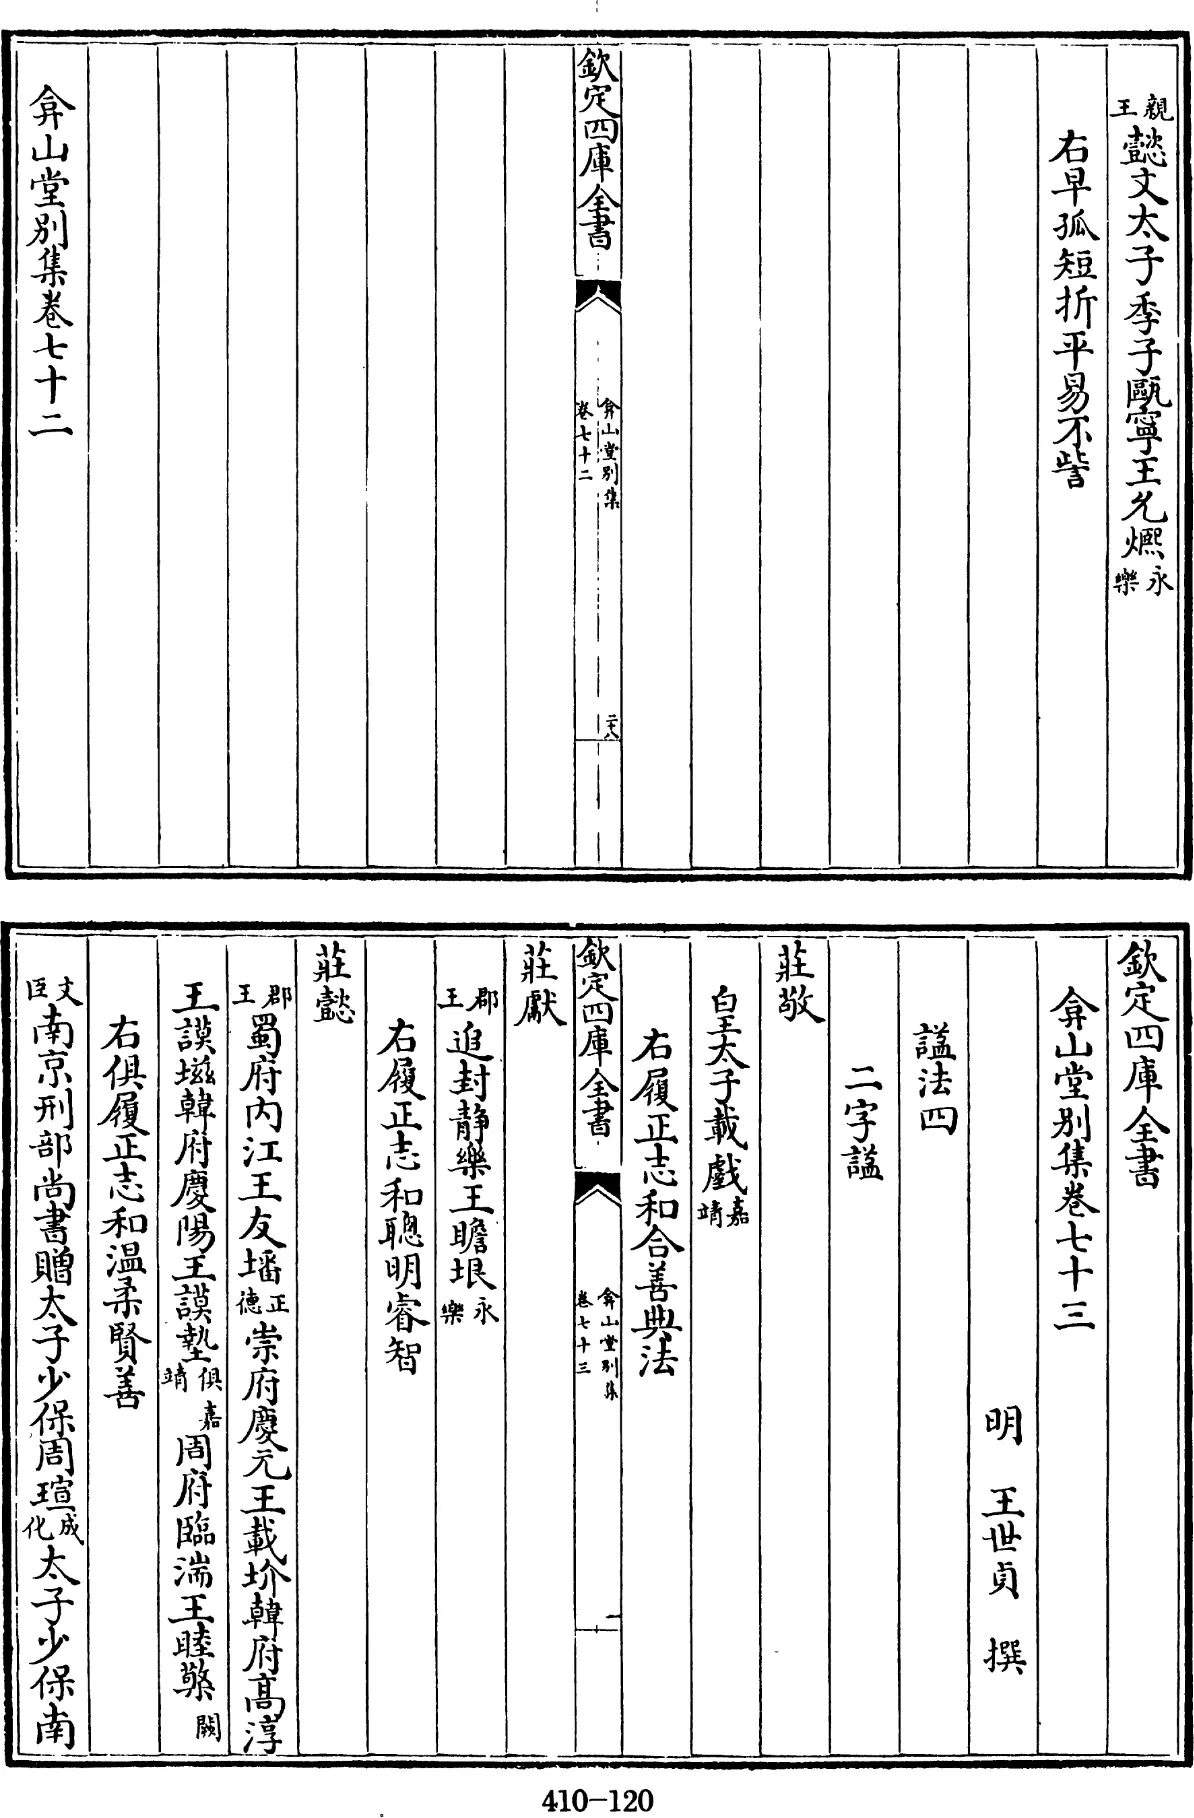 親王懿文太子季子甌寧王允熞永樂
右早孤短折平易不訾
欽定四庫全書
弇山堂別集
卷七十二
二十八
弇山堂別集卷七十二
欽定四庫全書
弇山堂別集卷七十三
明 王世貞 撰
諡法四
二字諡
莊敬
皇太子載壡嘉靖
右履正志和合善典法
欽定四庫全書
弇山堂別集
卷七十三
一
莊獻
郡王追封靜樂王瞻垠永樂
右履正志和聰明睿智
莊懿
郡王蜀府內江王友墦正德崇府慶元王載圿韓府高淳
王謨㙲韓府慶陽王謨墊俱嘉靖周府臨湍王睦㰂闕
右俱履正志和温柔賢善
文臣南京刑部尚書贈太子少保周瑄成化太子少保南
410-120